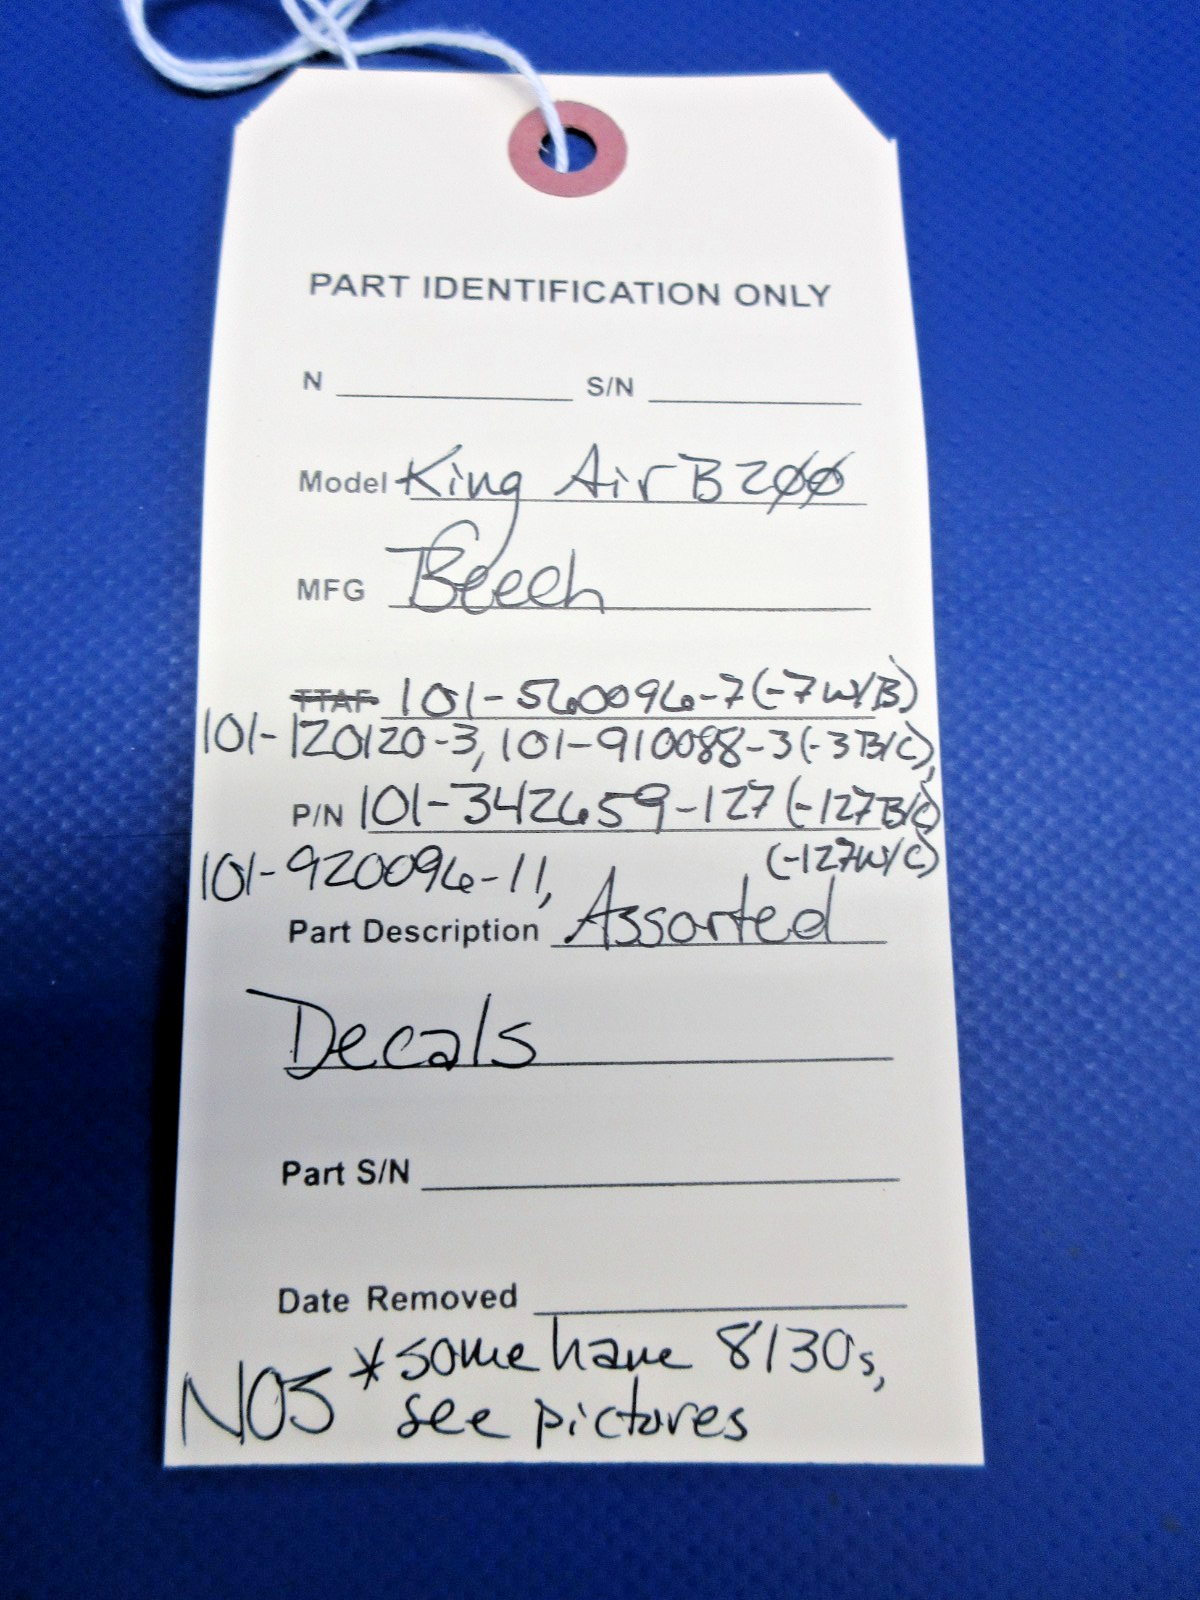 PART IDENTIFICATION ONLY
N S/N
Model King Air B200
MFG Beech
TTAF 101-560096-7 (-7W/B)
101-120120-3, 101-910088-3 (-3B/C),
P/N 101-342659-127 (-127B/C)
(-127W/C)
101-920096-11,
Part Description Assorted
Decals
Part S/N
Date Removed
NOS *some have 8130s,
see pictures